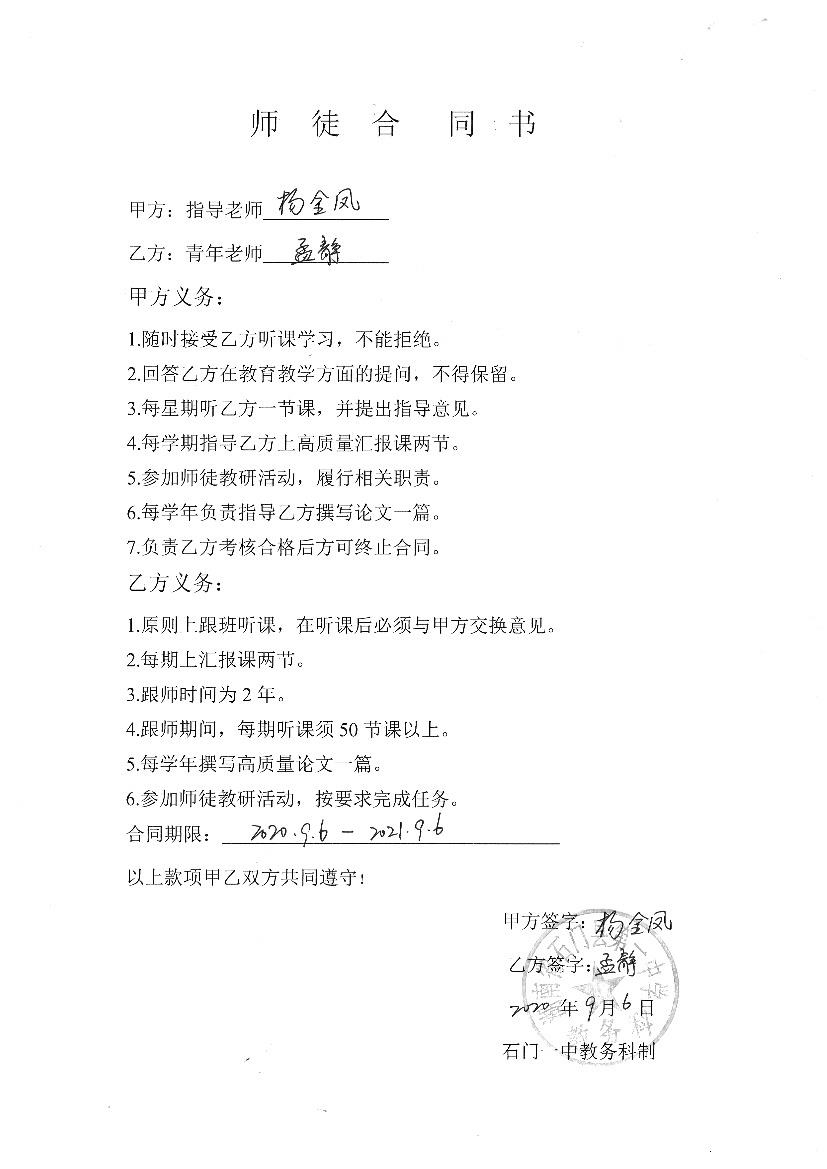 师 徒 合 同 书
甲方：指导老师 杨金凤
乙方：青年老师 孟静
甲方义务：
1.随时接受乙方听课学习，不能拒绝。
2.回答乙方在教育教学方面的提问，不得保留。
3.每星期听乙方一节课，并提出指导意见。
4.每学期指导乙方上高质量汇报课两节。
5.参加师徒教研活动，履行相关职责。
6.每学年负责指导乙方撰写论文一篇。
7.负责乙方考核合格后方可终止合同。
乙方义务：
1.原则上跟班听课，在听课后必须与甲方交换意见。
2.每期上汇报课两节。
3.跟师时间为 2 年。
4.跟师期间，每期听课须 50 节课以上。
5.每学年撰写高质量论文一篇。
6.参加师徒教研活动，按要求完成任务。
合同期限： 2020.9.6 － 2021.9.6
以上款项甲乙双方共同遵守！
甲方签字：杨金凤
乙方签字：孟静
2020 年 9 月 6 日
石门一中教务科制
湖南省石门县第一中学
教务科